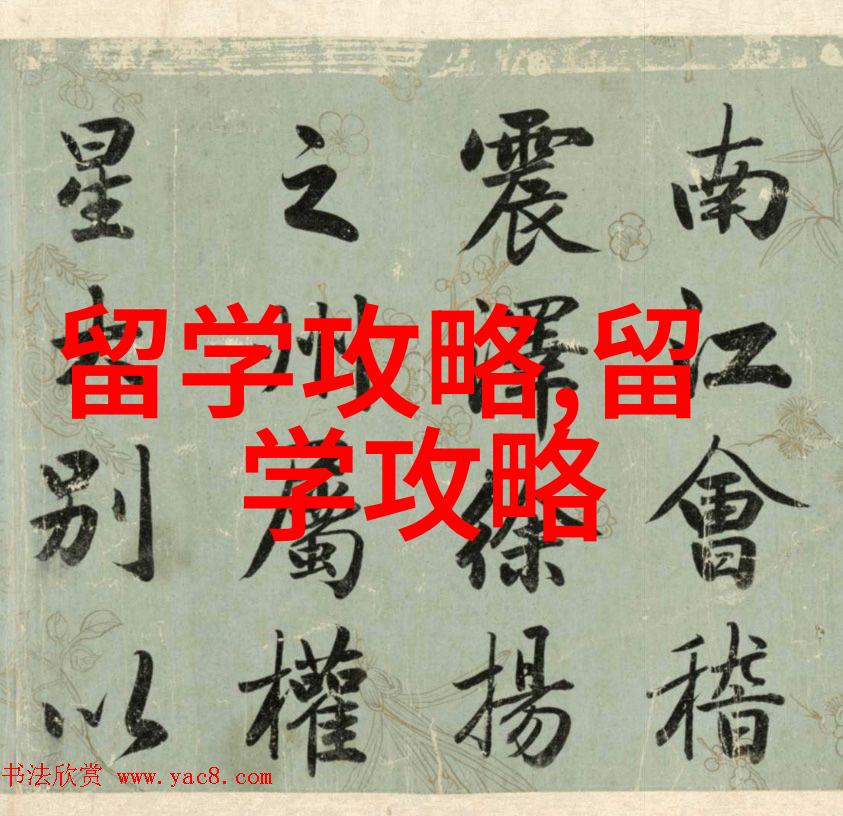 南江會稽
震澤徐揚
之州屬權
星別以
留学攻略,留
学攻略
书法欣赏 www.yac8.com